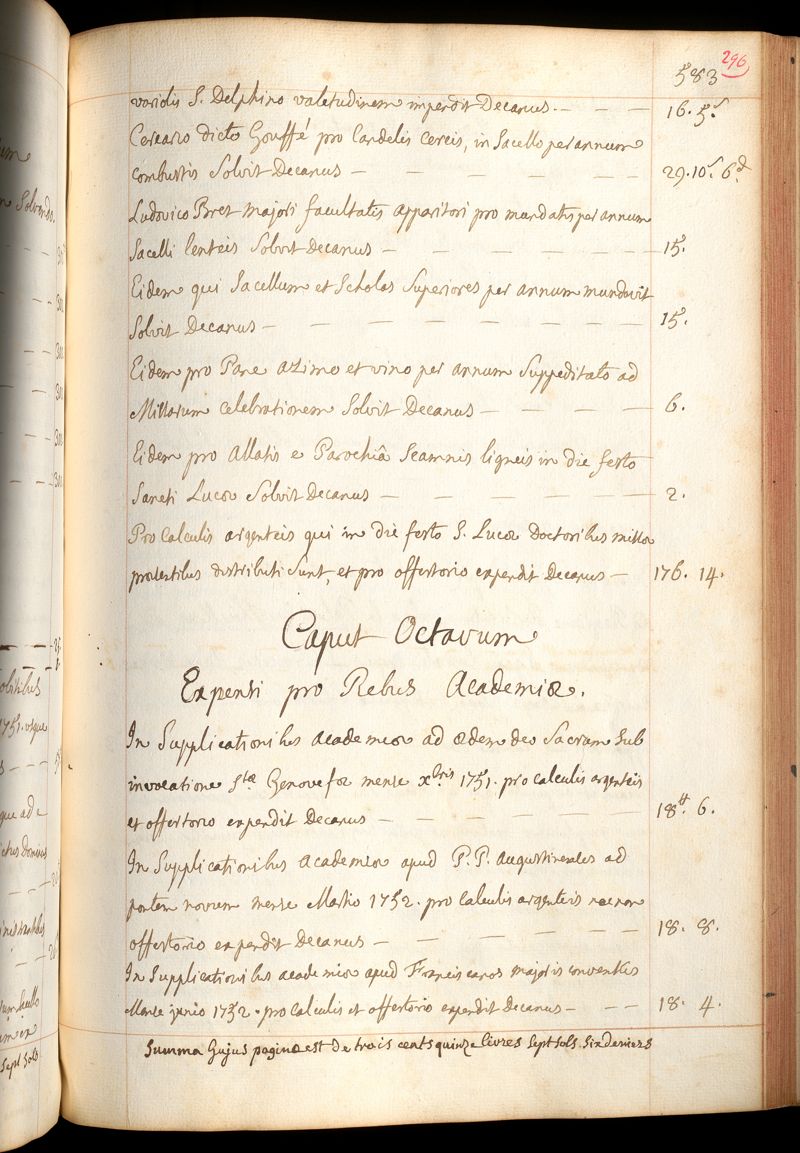 296
583
variolis S. Delphino valetudinem impendit Decanus — — — 16. 5ˢ
Cereario dicto Gouffé pro Candelis Cereis, in Sacello per annum
combustis Solvit Decanus — — — — — — 29. 10ˢ 6ᵈ
Ludovico Bret majori facultatis apparitori pro mundatis per annum
Sacelli linteis Solvit Decanus — — — — — — 15.
Eidem qui Sacellum et Scholas Superiores per annum mundavit
Solvit Decanus — — — — — — — — 15.
Eidem pro Pane azimo et vino per annum Suppeditato ad
Missarum celebrationem Solvit Decanus — — — — 6.
Eidem pro allatis e Parochiâ Scamnis ligneis in die festo
Sancti Lucæ Solvit Decanus — — — — — — 2.
Pro Calculis argenteis qui in die festo S. Lucæ Doctoribus missæ
præsentibus distributi Sunt, et pro offertorio expendit Decanus — 176. 14.
Caput Octavum
Expensi pro Rebus Academiæ.
In Supplicationibus academiæ ad ædem deo Sacram Sub
invocatione Sᵗᵃ Genovefæ mense xᵇʳⁱˢ 1751. pro calculis argenteis
et offertorio expendit Decanus — — — — — 18ᵗᵗ. 6.
In Supplicationibus academiæ apud P.P. Augustinenses ad
pontem novum mense Martio 1752. pro Calculis argenteis necnon
offertorio expendit Decanus — — — — — — 18. 8.
In Supplicationibus academiæ apud Franciscanos majoris conventus
Mense junio 1752. pro calculis et offertorio expendit Decanus — — — 18. 4.
Summa hujus paginæ est de trois cents quinze livres Sept Sols Six deniers